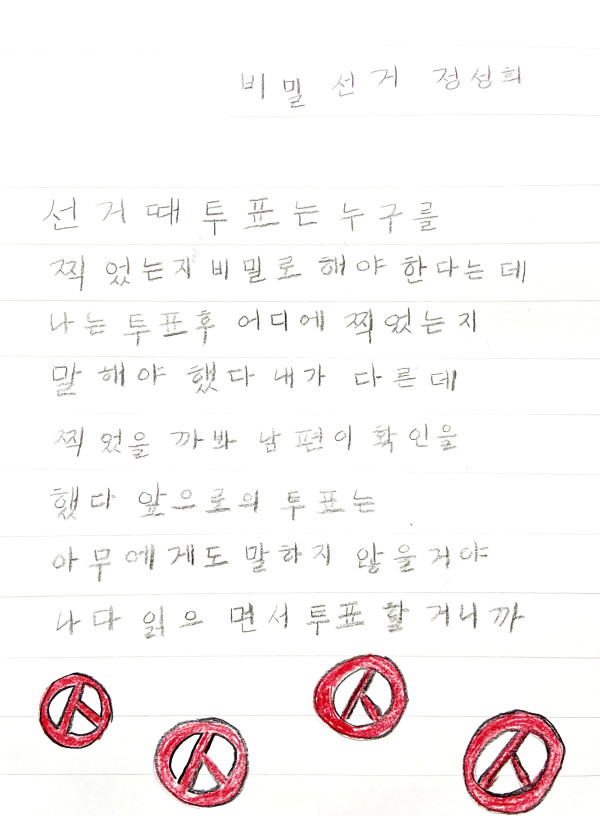 비밀 선거 정성희
선거때 투표는 누구를
찍었는지 비밀로 해야 한다는데
나는 투표후 어디에 찍었는지
말해야 했다 내가 다른데
찍었을까봐 남편이 확인을
했다 앞으로의 투표는
아무에게도 말하지 않을거야
나다 읽으면서 투표할거니까